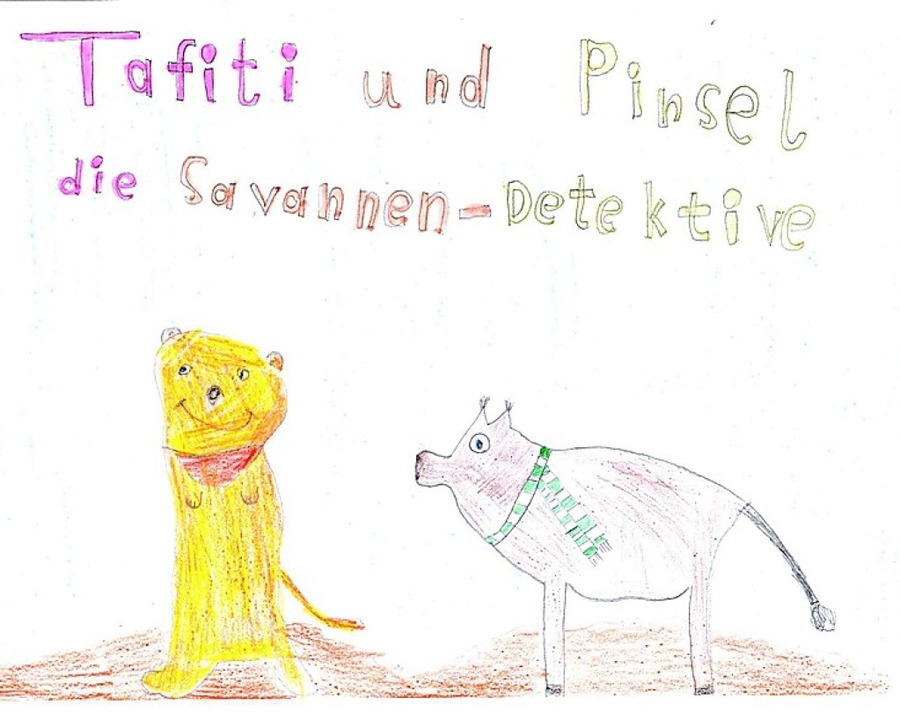 Tafiti und Pinsel
die Savannen-Detektive